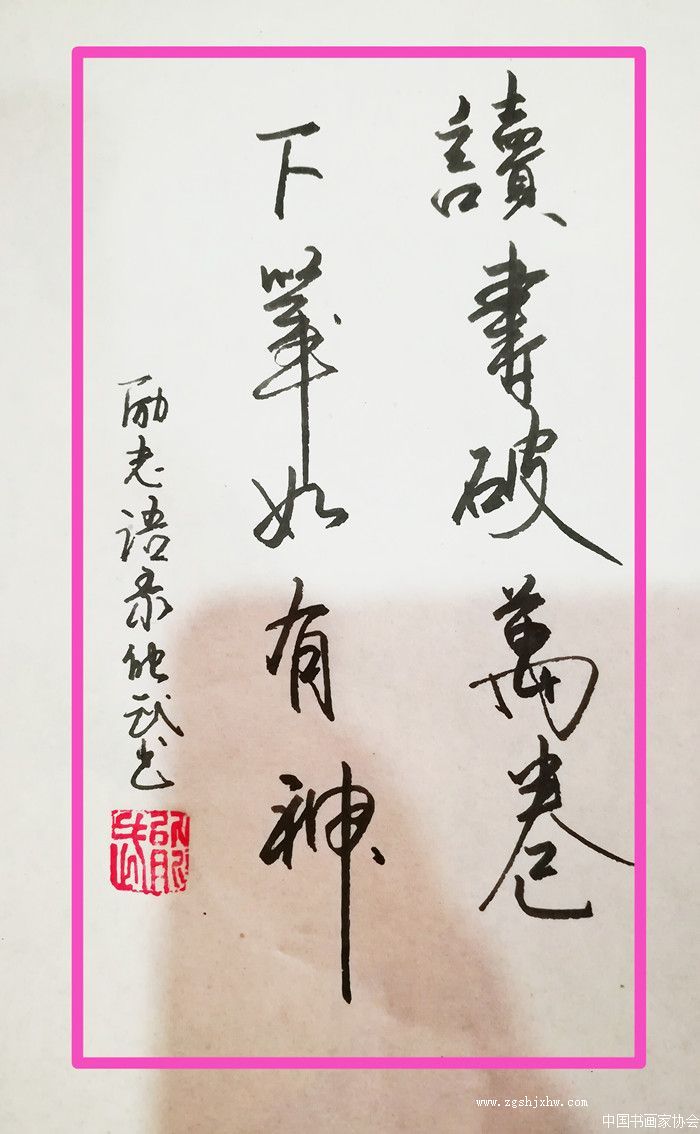 讀書破萬卷
下筆如有神
励志語录能武书
www.zgshjxhw.com
中国书画家协会